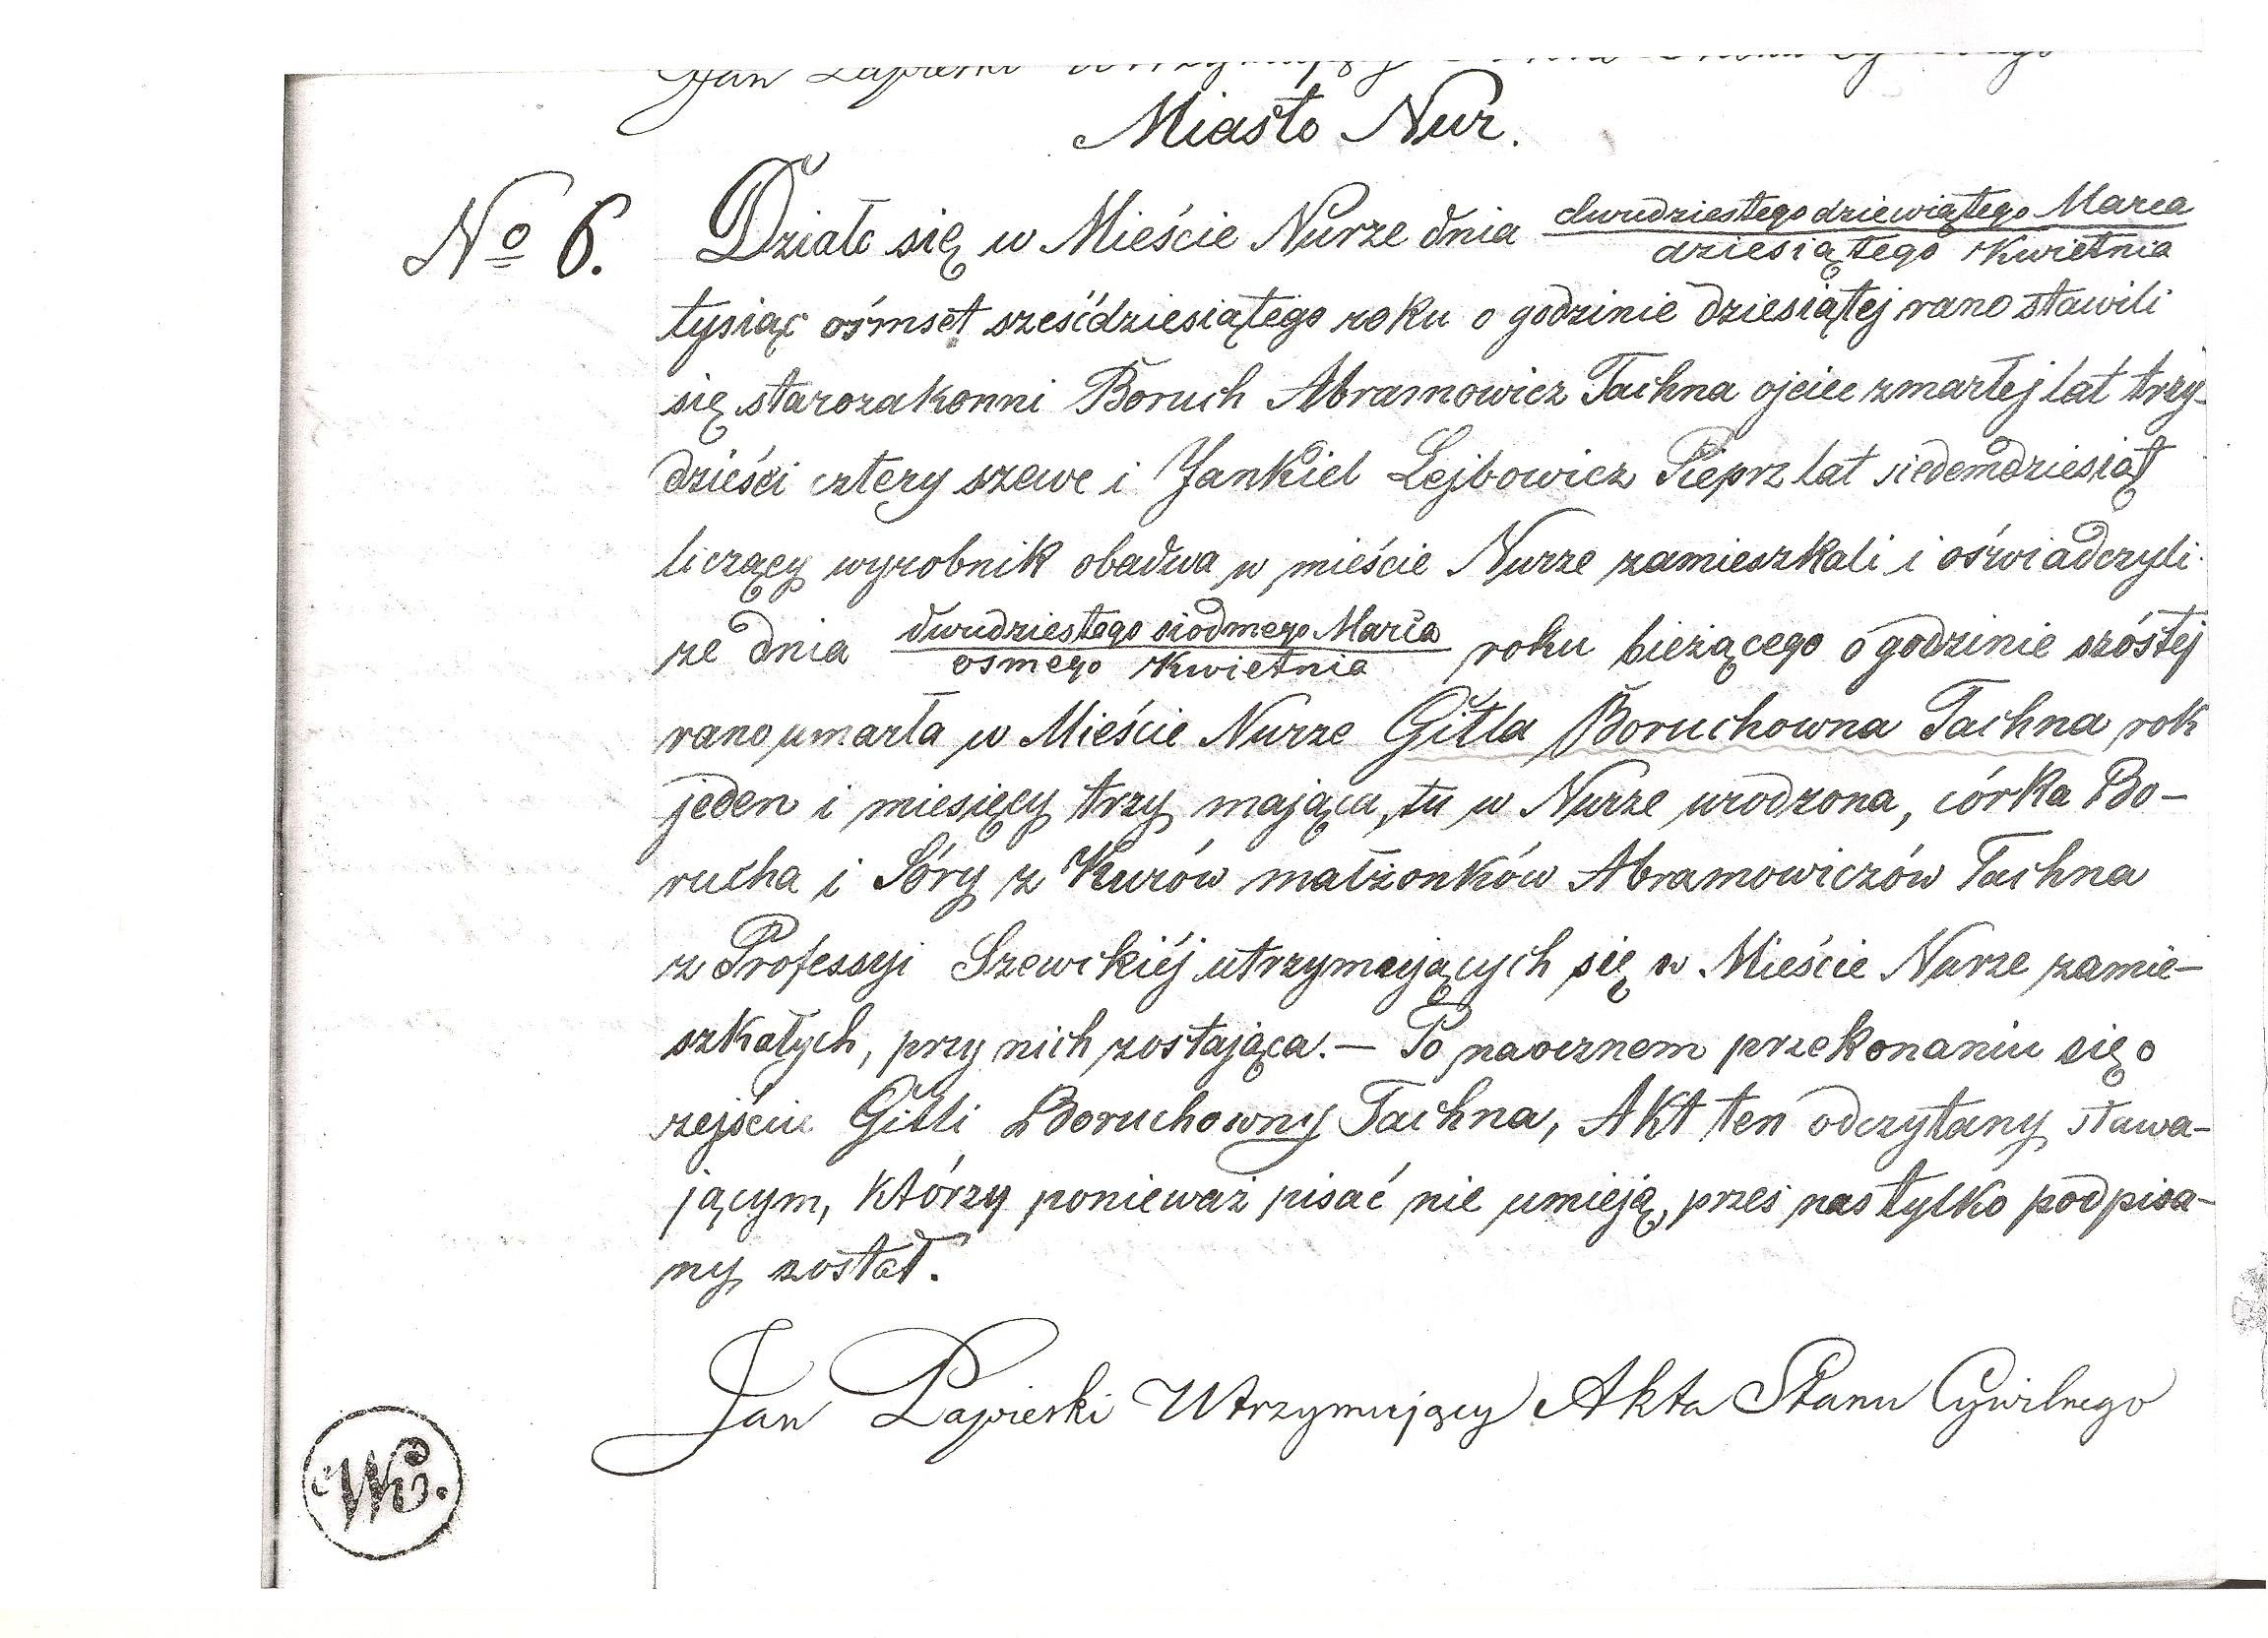 Jan Łapiński Utrzymujący
Miasto Nur.
No 6.
Działo się w Mieście Nurze dnia dwudziestego dziewiątego Marca / dziesiątego Kwietnia
tysiąc ośmset sześćdziesiątego roku o godzinie dziesiątej rano stawili
się starozakonni Boruch Abramowicz Tachna ojciec zmarłej lat trzy-
dzieści cztery szewc i Jankiel Lejbowicz Pieprz lat siedemdziesiąt
liczący wyrobnik obadwa w mieście Nurze zamieszkali i oświadczyli
że dnia dwudziestego siódmego Marca / osmego Kwietnia roku bieżącego o godzinie szóstej
rano umarła w Mieście Nurze Gitla Boruchowna Tachna rok
jeden i miesięcy trzy mająca, tu w Nurze urodzona, córka Bo-
rucha i Sóry z Kurów małżonków Abramowiczów Tachna
z Professyi Szewckiéj utrzymujących się w Mieście Nurze zamie-
szkałych, przy nich zostająca. — Po naocznem przekonaniu się o
zejściu Gitli Boruchowny Tachna, Akt ten odczytany stawa-
jącym, którzy ponieważ pisać nie umieją, przes nas tylko podpisa-
ny został.
Jan Łapiński Utrzymujący Akta Stanu Cywilnego